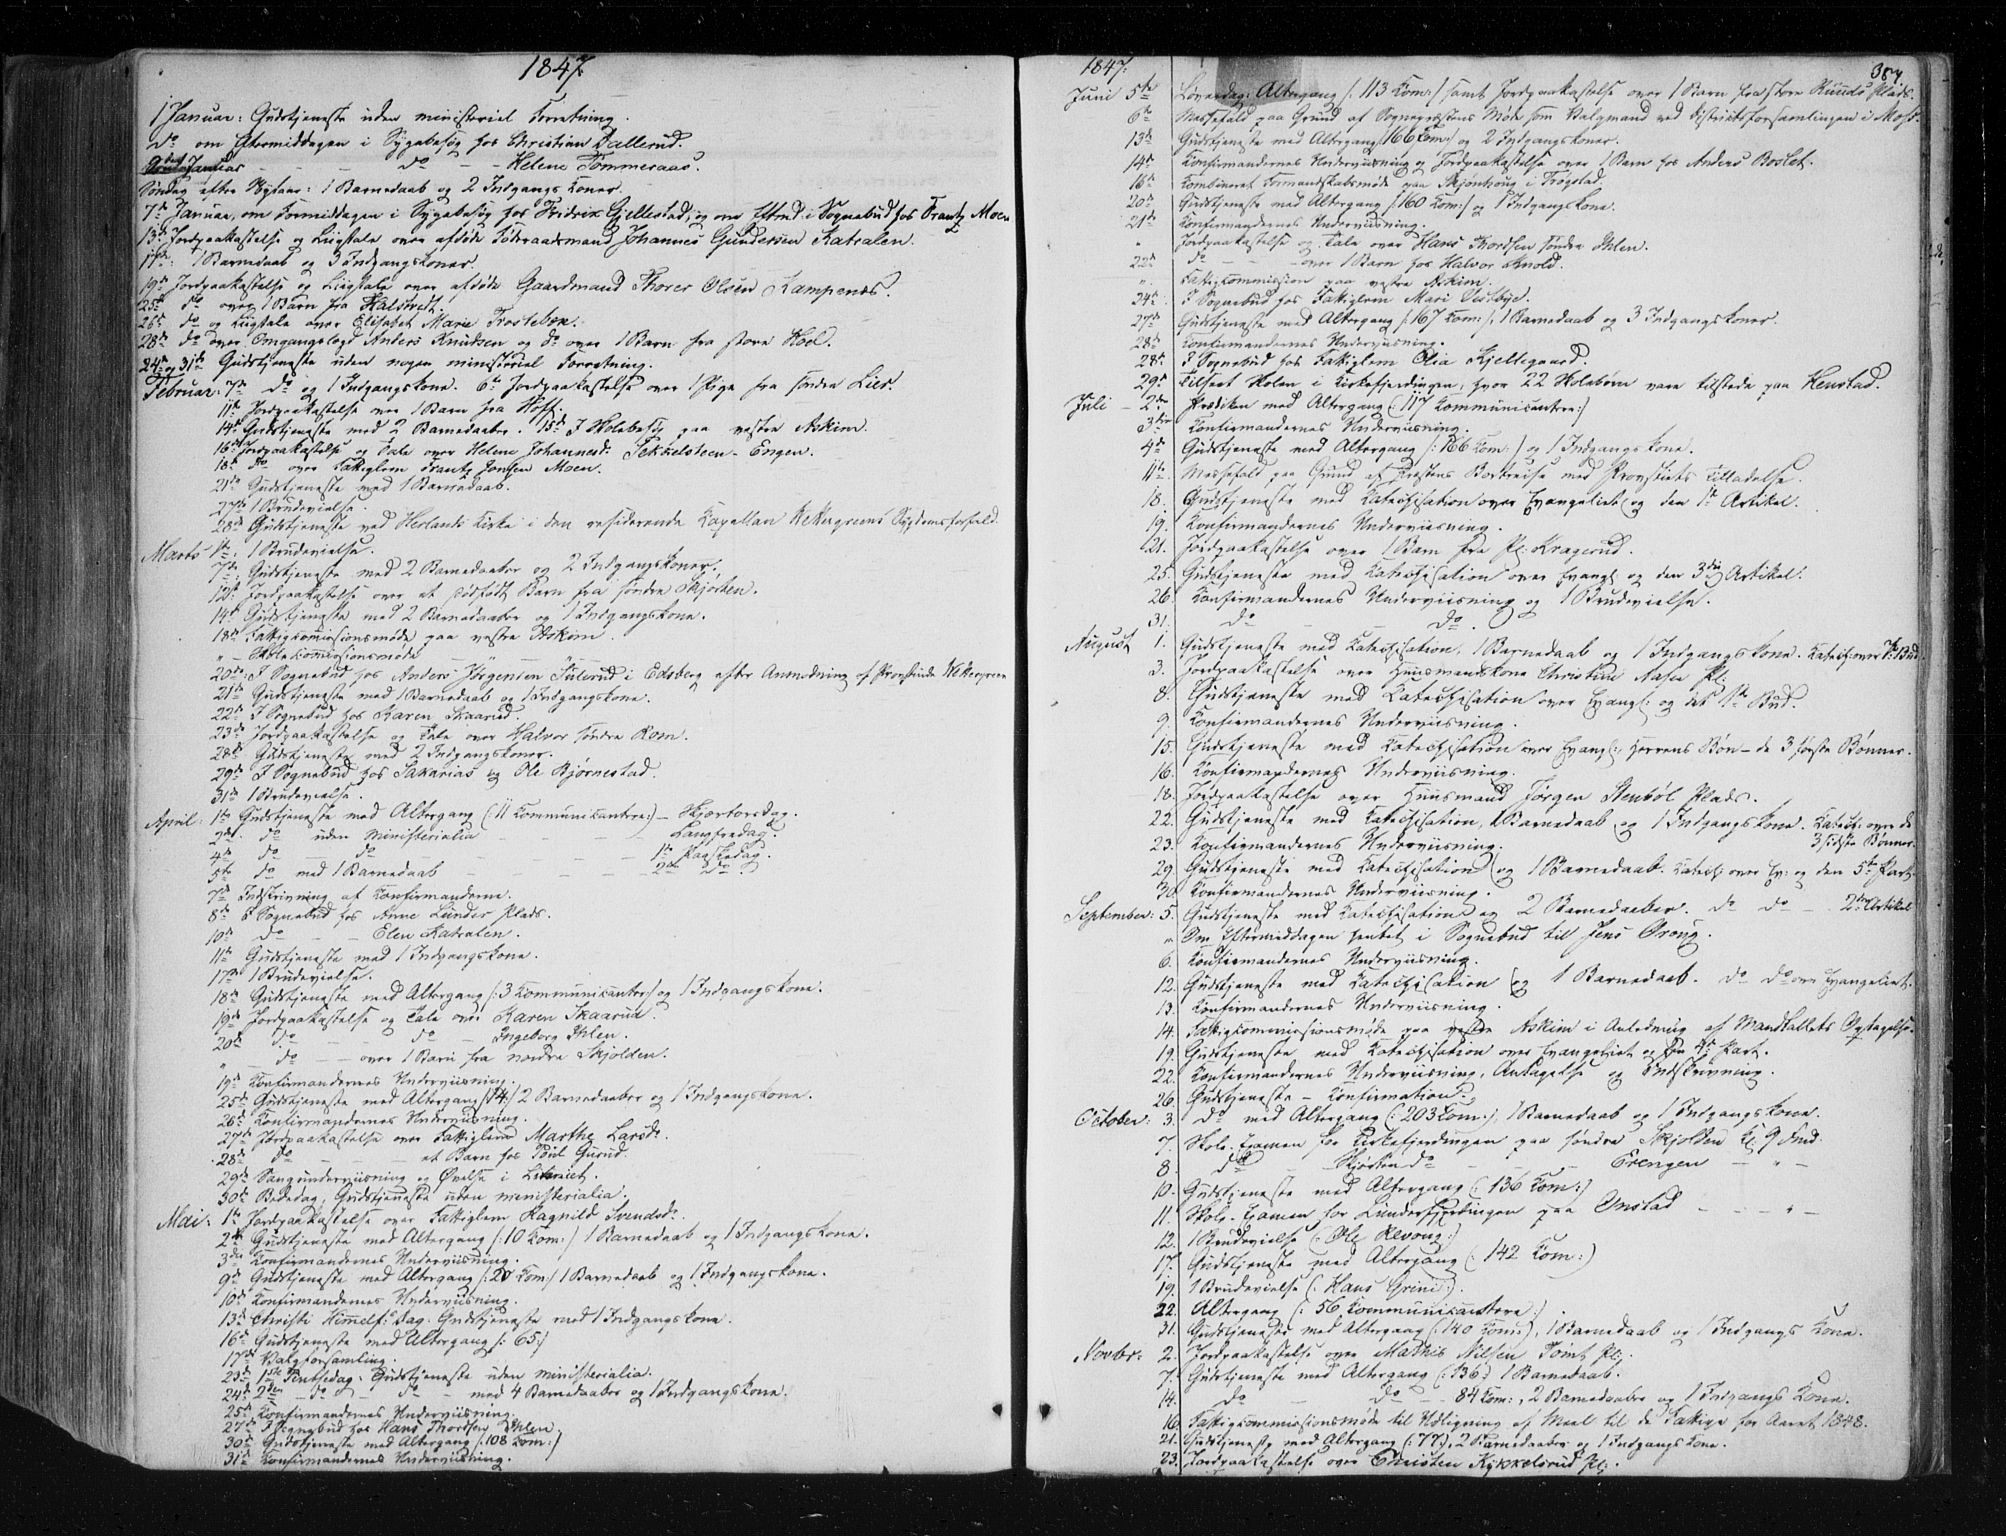 1847.
1 Januar: Gudstjeneste uden ministeriel Forretning.
do om Eftermiddagen i Sygebesøg hos Christian Dallerud.
Januar - - - do - - Helene Tømmeraas.
Søndag efter Nytaar: 1 Barnedaab og 2 Indgangskoner.
7de Januar, om Formiddagen i Sygebesøg hos Fridrik Gjellestad, og om Eftmd: i Sognebud hos Frantz Moen
13de Jordpaakastelse og Liigtale over afdøde Johannes Gundersen Katralen.
17de: 1 Barnedaab og 3 Indgangskoner.
19de Jordpaakastelse og Liigtale over afdøde Gaardmand Thorer Olsen Kampenes.
25de do over 1 Barn fra Halstvedt.
26de do og Liigtale over Elisabet Marie Trosteben.
28de do over Omgangslægd Anders Knudsen og do over 1 Barn fra store Hoel.
24de og 31te Gudstjeneste uden nogen ministeriel Forretning.
Februar: 7de do og 1 Indgangskone. 6te Jordpaakastelse over 1 Pige fra søndre Lier.
11te Jordpaakastelse over 1 Barn fra Hoff.
14de Gudstjeneste med 2 Barnedaaber. 15de I Skolebesøg paa vestre Askim.
16de Jordpaakastelse og Tale over Helene Johannesd: Sekkelsteen-Engen.
18de do over Fattiglem Frantz Jonsen Moen.
21de Gudstjeneste med 1 Barnedaab.
27de 1 Brudevielse.
28de Gudstjeneste ved Herlands Kirke i den residerende Kapellan Wekergreens Sygdomsforfald.
Marts 1te: 1 Brudevielse.
7de: Gudstjeneste med 2 Barnedaaber og 2 Indgangskoner.
12te: Jordpaakastelse over et dødfødt Barn fra søndre Skjørten.
14de Gudstjeneste med 2 Barnedaaber og 1 Indgangskone.
18de Fattigcommissionsmøde paa vestre Askim.
" - Skolekommissionsmøde " "
20de: I Sognebud hos Anders Jørgensen Sulerud i Edsberg efter Anmodning af Provstinde Wekergreen
21de Gudstjeneste med 1 Barnedaab og 1 Indgangskone.
22de I Sognebud hos Karen Skaarud.
23de Jordpaakastelse og Tale over Halvor søndre Rom.
28de Gudstjeneste med 2 Indgangskoner.
29de I Sognebud hos Sakarias og Ole Bjørnestad.
31te 1 Brudevielse.
April: 1te Gudstjeneste med Altergang (: 11 Kommunicantere:) - Skjærtorsdag.
2den do uden Ministerialia - - Langfredag.
4de do - do - - 1te Paaskedag.
5te do med 1 Barnedaab - - 2den do
7de Indskrivning af Konfirmanderne.
8de I Sognebud hos Anne Lunder Plads.
10de do - - Elen Katralen.
11te Gudstjeneste med 1 Indgangskone.
17de 1 Brudevielse.
18de Gudstjeneste med Altergang (: 3 Kommunicanter:) og 1 Indgangskone.
19de Jordpaakastelse og Tale over Karen Skaarud.
20de do - do - Ingeborg Ihlen.
" do - - over 1 Barn fra nordre Skjolden.
19de Konfirmandernes Underviisning.
25de Gudstjeneste med Altergang (: 14:) 2 Barnedaaber og 1 Indgangskone.
26de Konfirmandernes Underviisning.
27de Jordpaakastelse over Fattiglem Marthe Larsd:
28de do - - - et Barn hos Poul Gurud.
29de Sangunderviisning og Øvelse i Literiet.
30te Bededag, Gudstjeneste uden ministerialia.
Mai: 1te Jordpaakastelse over Fattiglem Ragnild Svendsd:
2den Gudstjeneste med Altergang (: 10 Kom:) 1 Barnedaab og 1 Indgangskone.
3die Konfirmandernes Underviisning.
9de Gudstjeneste med Altergang (: 20 Kom:) 1 Barnedaab og 1 Indgangskone.
10de Konfirmandernes Underviisning.
13de Christi Himmelf: Dag. Gudstjeneste med 1 Indgangskone.
16de Gudstjeneste med Altergang (: 65:)
17de Valgforsamling.
23de 1ste Pintsedag. Gudstjeneste uden ministerialia.
24de 2den - do - do - med 4 Barnedaaber og 1 Indgangskone.
25de Konfirmandernes Underviisning.
27de I Sognebud hos Hans Thordsen Ihlen.
30te Gudstjeneste med Altergang (: 108 Kom:)
31te Konfirmandernes Underviisning.
1847.
387.
Juni 5te Løverdag: Altergang (: 113 Kom:) samt Jordpaakastelse over 1 Barn fra store Ruuds Plads.
6te Messefald paa Grund af Sognepræstens Møde som Valgmand ved Districtsforsamlingen i Moss.
13de Gudstjeneste med Altergang (: 166 Kom:) og 2 Indgangskoner.
14de Konfirmandernes Underviisning og Jordpaakastelse over 1 Barn hos Anders Boslet.
16de Kombineret Formandskabsmøde paa Skjønhoug i Trøgstad.
20de Gudstjeneste med Altergang (: 160 Kom:) og 1 Indgangskone.
21de Konfirmandernes Underviisning.
" Jordpaakastelse og Tale over Hans Thordsen søndre Ihlen.
22de do - - - over 1 Barn hos Halvor Arnold.
" Fattigkommission paa vestre Askim.
24de I Sognebud hos Fattiglem Mari Vestbye.
27de Gudstjeneste med Altergang (: 167 Kom:), 1 Barnedaab og 3 Indgangskoner.
28de Konfirmandernes Underviisning.
28de I Sognebud hos Fattiglem Olia Kjellegaard.
29de Tilseet Skolen i Kirkefjerdingen, hvor 22 Skolebørn vare tilstede paa Henstad.
Juli - 2den Prædiken med Altergang (: 117 Kommunicantere:)
3die Konfirmandernes Underviisning.
4de Gudstjeneste med Altergang (: 166 Kom:) og 1 Indgangskone.
11te Messefald paa Grund af Præstens Bortreise med Provstiets Tilladelse.
18. Gudstjeneste med Katechisation over Evangeliet og den 1te Artikel.
19. Konfirmandernes Underviisning.
21. Jordpaakastelse over 1 Barn fra Pl: Kragerud.
25. Gudstjeneste med Katechisation over Evangl: og den 3die Artikel.
26. Konfirmandernes Underviisning og 1 Brudevielse.
31. do - do.
August 1. Gudstjeneste med Katechisation, 1 Barnedaab og 1 Indgangskone. Katech: over 7de Bud.
3. Jordpaakastelse over Huusmandskone Christine Aasen Pl:
8. Gudstjeneste med Katechisation over Evangl: og det 1te Bud.
9. Konfirmandernes Underviisning.
15. Gudstjeneste med Katechisation over Evangl:, Herrens Bøn - de 3 første Bønner.
16. Konfirmandernes Underviisning.
18. Jordpaakastelse over Huusmand Jørgen Stenbøl Plads.
22. Gudstjeneste med Katechisation, 1 Barnedaab og 1 Indgangskone. Katech: over de 3 sidste Bønner.
23. Konfirmandernes Underviisning.
29. Gudstjeneste med Katechisation og 1 Barnedaab. Katech: over Ev: og den 5te Part.
30. Konfirmandernes Underviisning.
September: 5. Gudstjeneste med Katechisation og 2 Barnedaaber. do do - 2den Artikel
" Om Eftermiddagen hentet i Sognebud til Jens Oroug.
6. Konfirmandernes Underviisning.
12. Gudstjeneste med Katechisation og 1 Barnedaab. do do over Evangeliet.
13. Konfirmandernes Underviisning.
14. Fattigcommissionsmøde paa vestre Askim i Anledning af Mandtallets Optagelse.
19. Gudstjeneste med Katechisation over Evangeliet og den 4de Part.
22. Konfirmandernes Underviisning, Antagelse og Indskrivning.
26. Gudstjeneste - Konfirmation.
October: 3. do med Altergang (: 203 Kom:), 1 Barnedaab og 1 Indgangskone.
7. Skole-Examen for Kirkefjerdingen paa søndre Skjolden Kl. 9 Fmd.
8. do - Skjørten do - - Trengen - " -
10. Gudstjeneste med Altergang (: 136 Kom:)
11. Skole-Examen for Lunderfjerdingen paa Onstad - - - " -
12. 1 Brudevielse (: Ole Revoug:)
17. Gudstjeneste med Altergang (: 142 Kom:)
19. 1 Brudevielse (: Hans Grini:).
22. Altergang (: 56 Kommunicantere:).
31. Gudstjeneste med Altergang (: 140 Kom:), 1 Barnedaab og 1 Indgangs Kone.
Novbr: 2. Jordpaakastelse over Mathis Nilsen Tomt Pl:
7. Gudstjeneste med Altergang (: 136:) 1 Barnedaab.
14. do - do - 84 Kom:, 2 Barnedaaber og 1 Indgangs Kone.
16. Fattigcommissionsmøde til Udligning af Meel til de Fattige for Aaret 1848.
21. Gudstjeneste med Altergang (: 77:), 2 Barnedaaber og 1 Indgangs Kone.
23. Jordpaakastelse over Christen Kykkelsrud Pl: